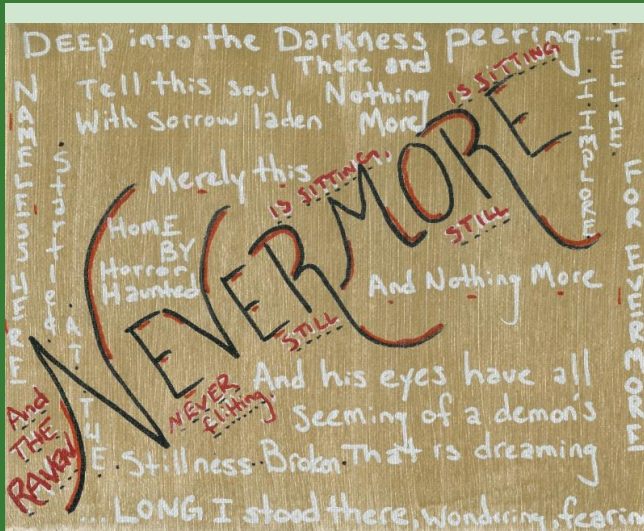 DEEP into the Darkness peering...
There and
Nothing
More
Tell this soul
With sorrow laden
IS SITTING
TELL ME
I IMPLORE
FOR EVERMORE
NAMELESS HERE
Startled AT THE
Stillness Broken
Merely this
IS SITTING,
HOME
BY
Horror
Haunted
NEVERMORE
STILL
And Nothing More
STILL
And THE RAVEN
NEVER
flitting.
And his eyes have all
seeming of a demon's
That is dreaming
...LONG I stood there, Wondering, fearin